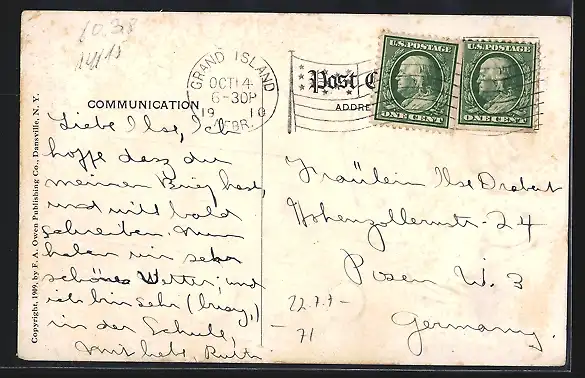 10.38
14/15
GRAND ISLAND
OCT 14
6-30P
1910
NEBR.
U.S. POSTAGE
ONE CENT
U.S. POSTAGE
ONE CENT
Post C
ADDRE
COMMUNICATION
Liebe Ilse, Ich
hoffe dasz du
meinen Brief hast,
und will bald
schreiben. Nun
haben wir sehr
schönes Wetter, und
ich bin sehr (busy,)
in der Schule,
Mit liebe, Ruth
Fräulein Ilse Drabert
Hohenzollernstr- 24
Posen W. 3
Germany.
22.7.7-
- 71
Copyright, 1909, by F. A. Owen Publishing Co., Dansville, N. Y.